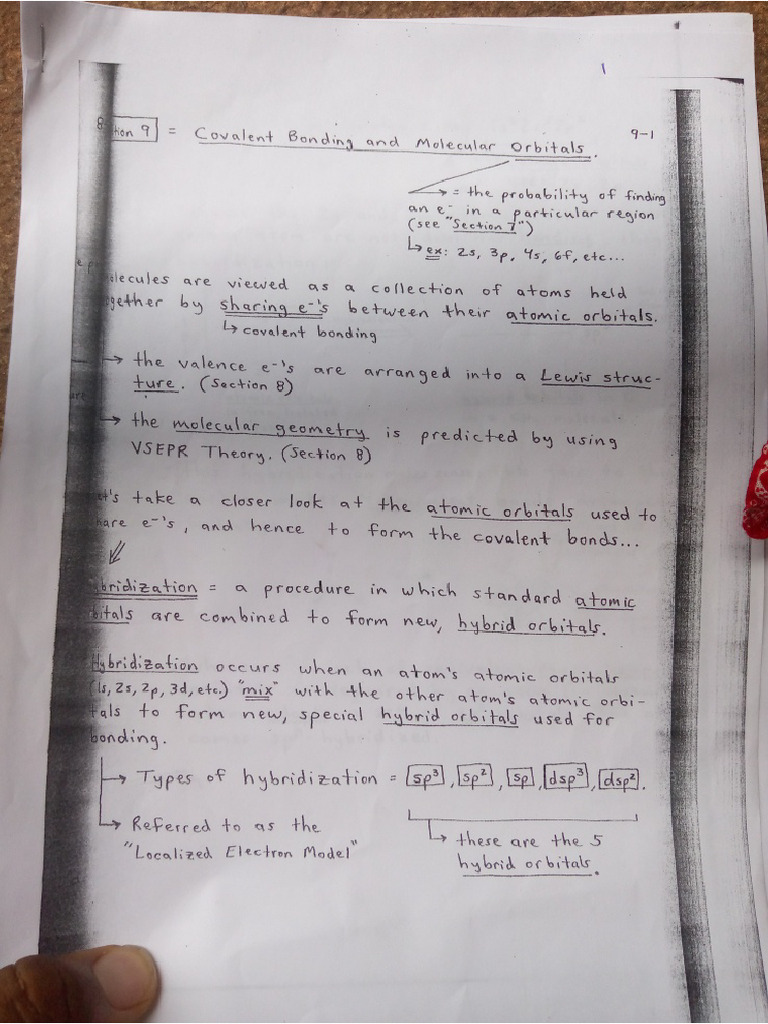 1
9-1
tion 9 = Covalent Bonding and Molecular Orbitals.
→ = the probability of finding
an e⁻ in a particular region
(see "Section 7")
↳ ex: 2s, 3p, 4s, 6f, etc...
olecules are viewed as a collection of atoms held
ogether by sharing e⁻'s between their atomic orbitals.
↳ covalent bonding
→ the valence e⁻'s are arranged into a Lewis struc-
ture. (Section 8)
→ the molecular geometry is predicted by using
VSEPR Theory. (Section 8)
et's take a closer look at the atomic orbitals used to
hare e⁻'s, and hence to form the covalent bonds...
bridization = a procedure in which standard atomic
bitals are combined to form new, hybrid orbitals.
Hybridization occurs when an atom's atomic orbitals
(1s, 2s, 2p, 3d, etc.) "mix" with the other atom's atomic orbi-
tals to form new, special hybrid orbitals used for
bonding.
→ Types of hybridization = sp³, sp², sp, dsp³, dsp².
→ Referred to as the
"Localized Electron Model"
↳ these are the 5
hybrid orbitals.